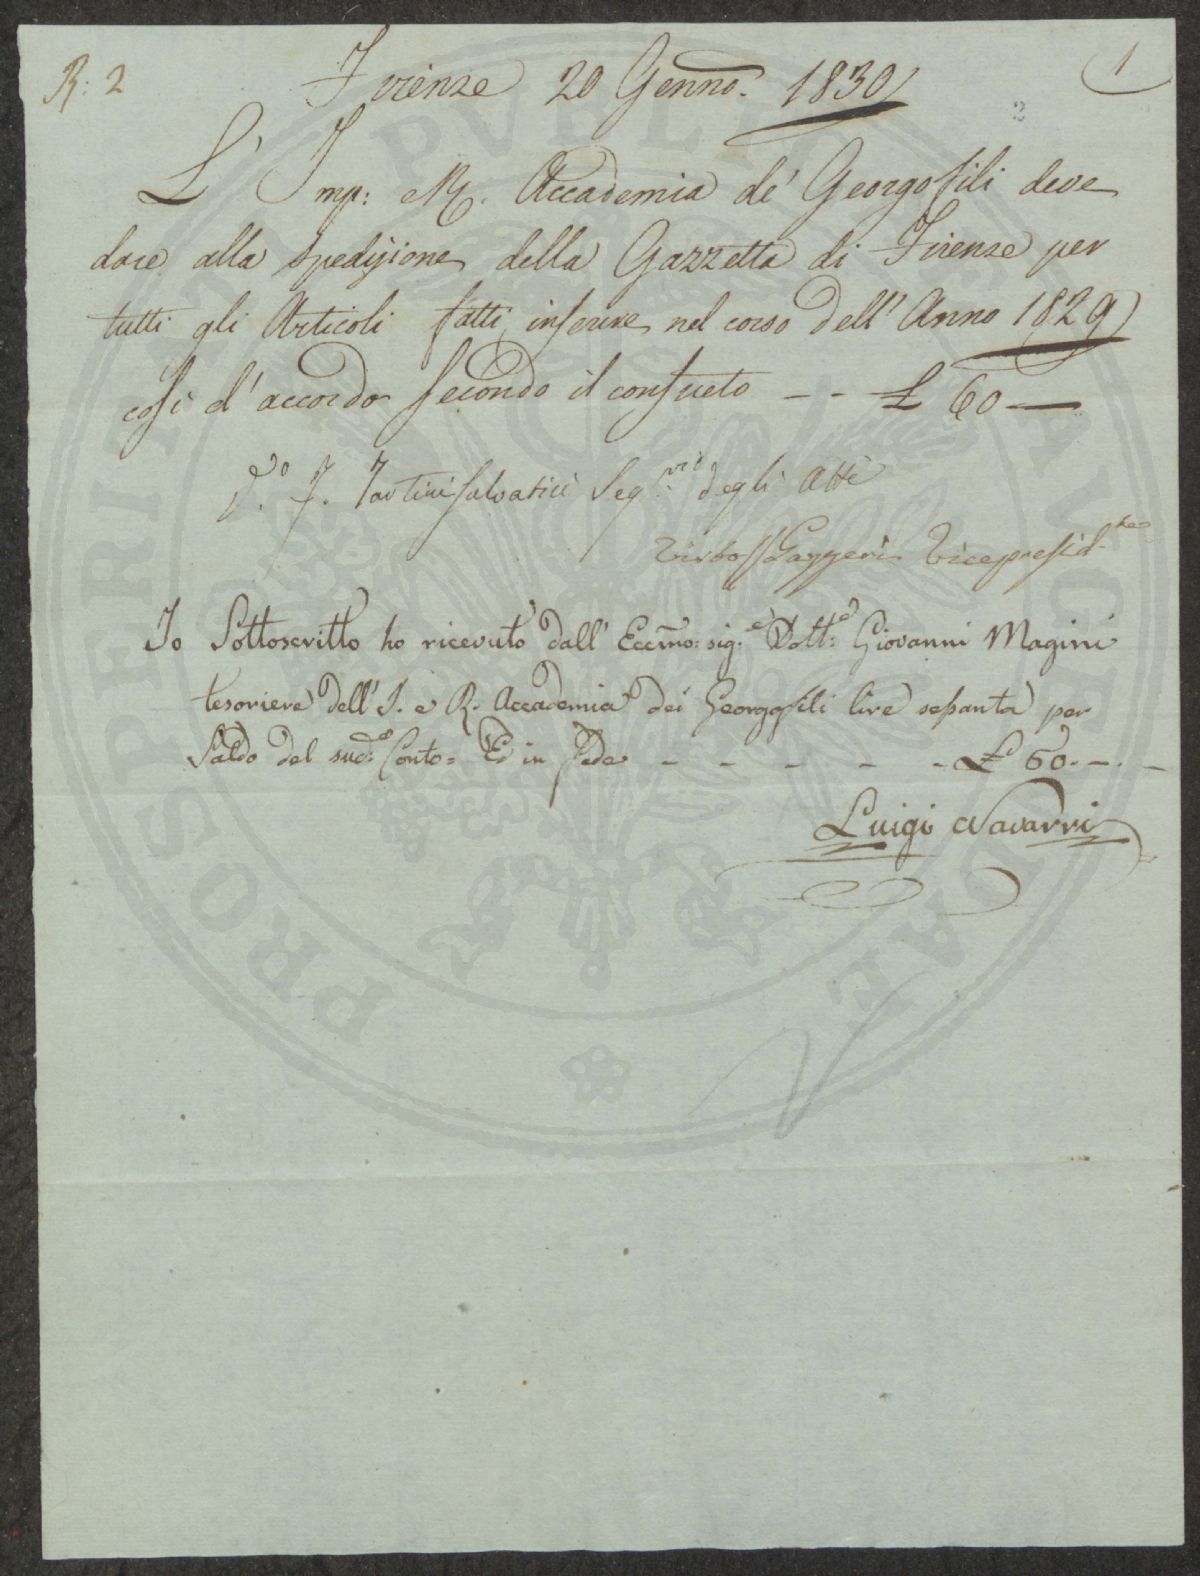 R: 2
Firenze 20 Genno. 1830
1
2
L' Imp: e R. Accademia de' Georgofili deve
dare alla spedizione della Gazzetta di Firenze per
tutti gli Articoli fatti inserire nel corso dell' Anno 1829
cosi d' accordo secondo il consueto -- £ 60 —
V.º F. Tartini Salvatici Seg.rio degli Atti
Visto Gazzeri Vicepresid.te
Io Sottoscritto ho ricevuto dall' Eccmo: sig.e Dott:e Giovanni Magini
tesoriere dell' I. e R. Accademia dei Georgofili lire sessanta per
Saldo del sud:o Conto = Ed in fede - - - - - - £ 60. -. -
Luigi Navarri
PROSPERITATI PVBLICAE AVGENDAE